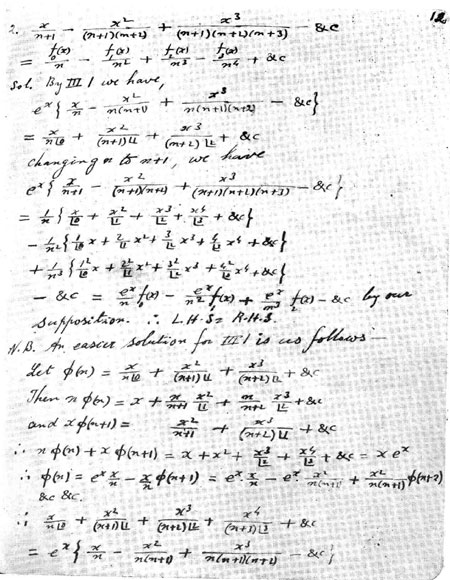 12
2. x/(n+1) - x²/((n+1)(n+2)) + x³/((n+1)(n+2)(n+3)) - &c
= f₀(x)/n - f₁(x)/n² + f₂(x)/n³ - f₃(x)/n⁴ + &c
Sol. By III 1 we have,
eˣ{x/n - x²/(n(n+1)) + x³/(n(n+1)(n+2)) - &c}
= x/(n|0) + x²/((n+1)|1) + x³/((n+2)|2) + &c
changing n to n+1, we have
eˣ{x/(n+1) - x²/((n+1)(n+2)) + x³/((n+1)(n+2)(n+3)) - &c}
= 1/n {x/|0 + x²/|1 + x³/|2 + x⁴/|3 + &c}
- 1/n² {1/|0 x + 2/|1 x² + 3/|2 x³ + 4/|3 x⁴ + &c}
+ 1/n³ {1²/|0 x + 2²/|1 x² + 3²/|2 x³ + 4²/|3 x⁴ + &c}
- &c = eˣ/n f₀(x) - eˣ/n² f₁(x) + eˣ/n³ f₂(x) - &c by our
supposition. ∴ L.H.S = R.H.S.
N.B. An easier solution for III 1 is as follows—
Let φ(n) = x/(n|0) + x²/((n+1)|1) + x³/((n+2)|2) + &c
Then n φ(n) = x + n/(n+1) x²/|1 + n/(n+2) x³/|2 + &c
and x φ(n+1) = x²/(n+1) + x³/((n+2)|1) + &c
∴ n φ(n) + x φ(n+1) = x + x² + x³/|2 + x⁴/|3 + &c = x eˣ
∴ φ(n) = eˣ x/n - x/n φ(n+1) = eˣ x/n - eˣ · x²/(n(n+1)) + x²/(n(n+1)) φ(n+2)
&c &c.
∴ x/(n|0) + x²/((n+1)|1) + x³/((n+2)|2) + x⁴/((n+3)|3) + &c
= eˣ{x/n - x²/(n(n+1)) + x³/(n(n+1)(n+2)) - &c}